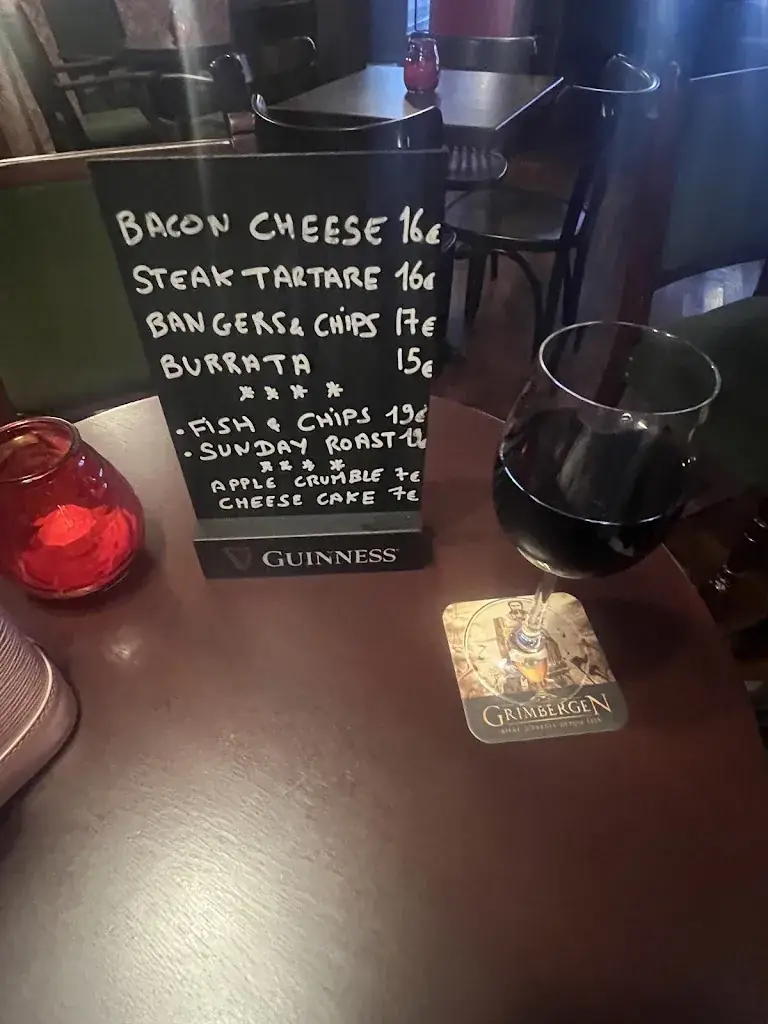 BACON CHEESE 16€
STEAK TARTARE 16€
BANGERS & CHIPS 17€
BURRATA 15€
* * * *
• FISH & CHIPS 19€
• SUNDAY ROAST
* * * *
APPLE CRUMBLE 7€
CHEESE CAKE 7€
GUINNESS
GRIMBERGEN